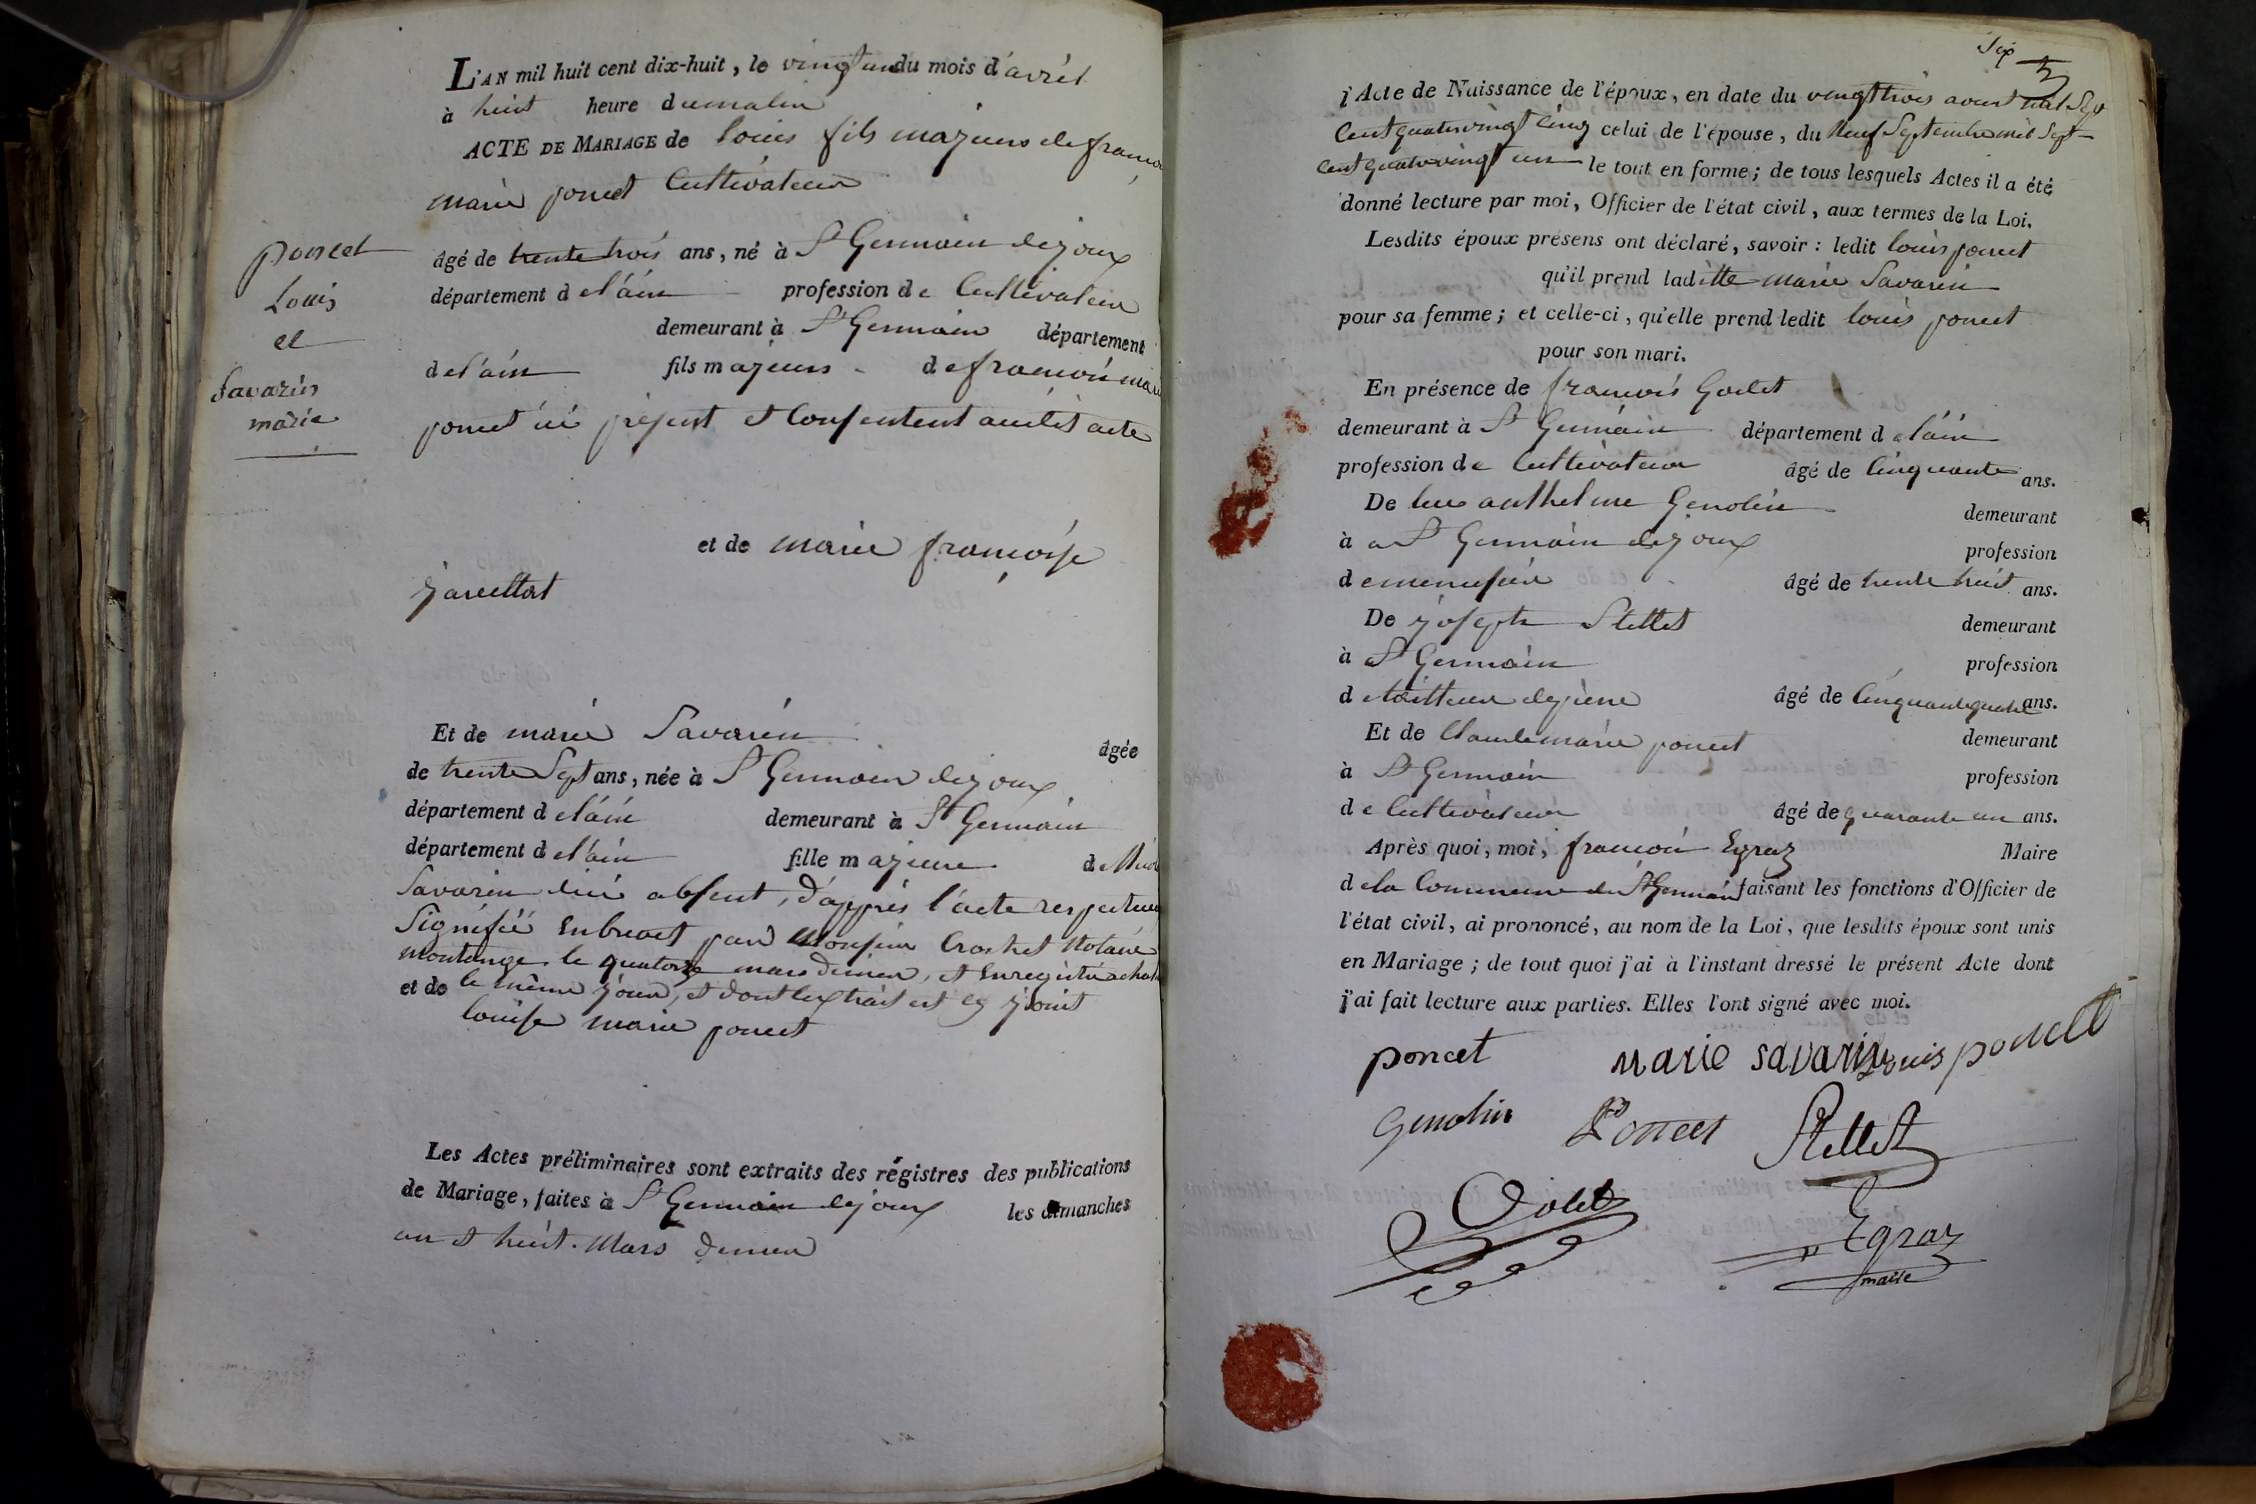 L'AN mil huit cent dix-huit, le vingt un du mois d'avril
à huit heure du matin
ACTE DE MARIAGE de louis fils majeurs de françois
marie poncet Cultivateur
poncet
Louis
et
Savarin
marie
âgé de trente trois ans, né à St Germain de joux
département de l'ain profession de Cultivateur
demeurant à St Germain département
de l'ain fils majeurs de françois marie
poncet ici présent et Consentent audit acte
et de marie françoise
Et de marie Savarin âgée
de trente Sept ans, née à St Germain de joux
département de l'ain demeurant à St Germain
département de l'ain fille majeure de
Savarin ici absent, d'apprès l'acte respectueux
Signifié Enbrevet par Monsieur Crochet Notaire
montange le quatorze mars dernier, et Enregistré a
et de le même jour, et dont lextrait est cy joint
louise marie poncet
Les Actes préliminaires sont extraits des régistres des publications
de Mariage, faites à St Germain de joux les dimanches
un et huit. Mars dernier
Six
l'Acte de Naissance de l'époux, en date du vingt trois aoust mil Sept
Cent quatre vingt Cinq celui de l'épouse, du Neuf Septembre mil Sept
Cent quatre vingt un le tout en forme; de tous lesquels Actes il a été
donné lecture par moi, Officier de l'état civil, aux termes de la Loi.
Lesdits époux présens ont déclaré, savoir: ledit louis poncet
qu'il prend laditte marie Savarin
pour sa femme; et celle-ci, qu'elle prend ledit louis poncet
pour son mari.
En présence de françois Godet
demeurant à St Germain département de l'ain
profession de Cultivateur âgé de Cinquante ans.
De luc anthelme Genolin demeurant
à a St Germain de joux profession
de menusier âgé de trente huit ans.
De joseph Stellet demeurant
à St Germain profession
de tailleur de pierre âgé de Cinquante quatre ans.
Et de Claude marie poncet demeurant
à St Germain profession
de Cultivateur âgé de quarante un ans.
Après quoi, moi, françois Egraz Maire
de la Commune de St Germain faisant les fonctions d'Officier de
l'état civil, ai prononcé, au nom de la Loi, que lesdits époux sont unis
en Mariage; de tout quoi j'ai à l'instant dressé le présent Acte dont
j'ai fait lecture aux parties. Elles l'ont signé avec moi.
poncet marie savarin Louis poncet
Genolin Poncet Stellet
Egraz
maire